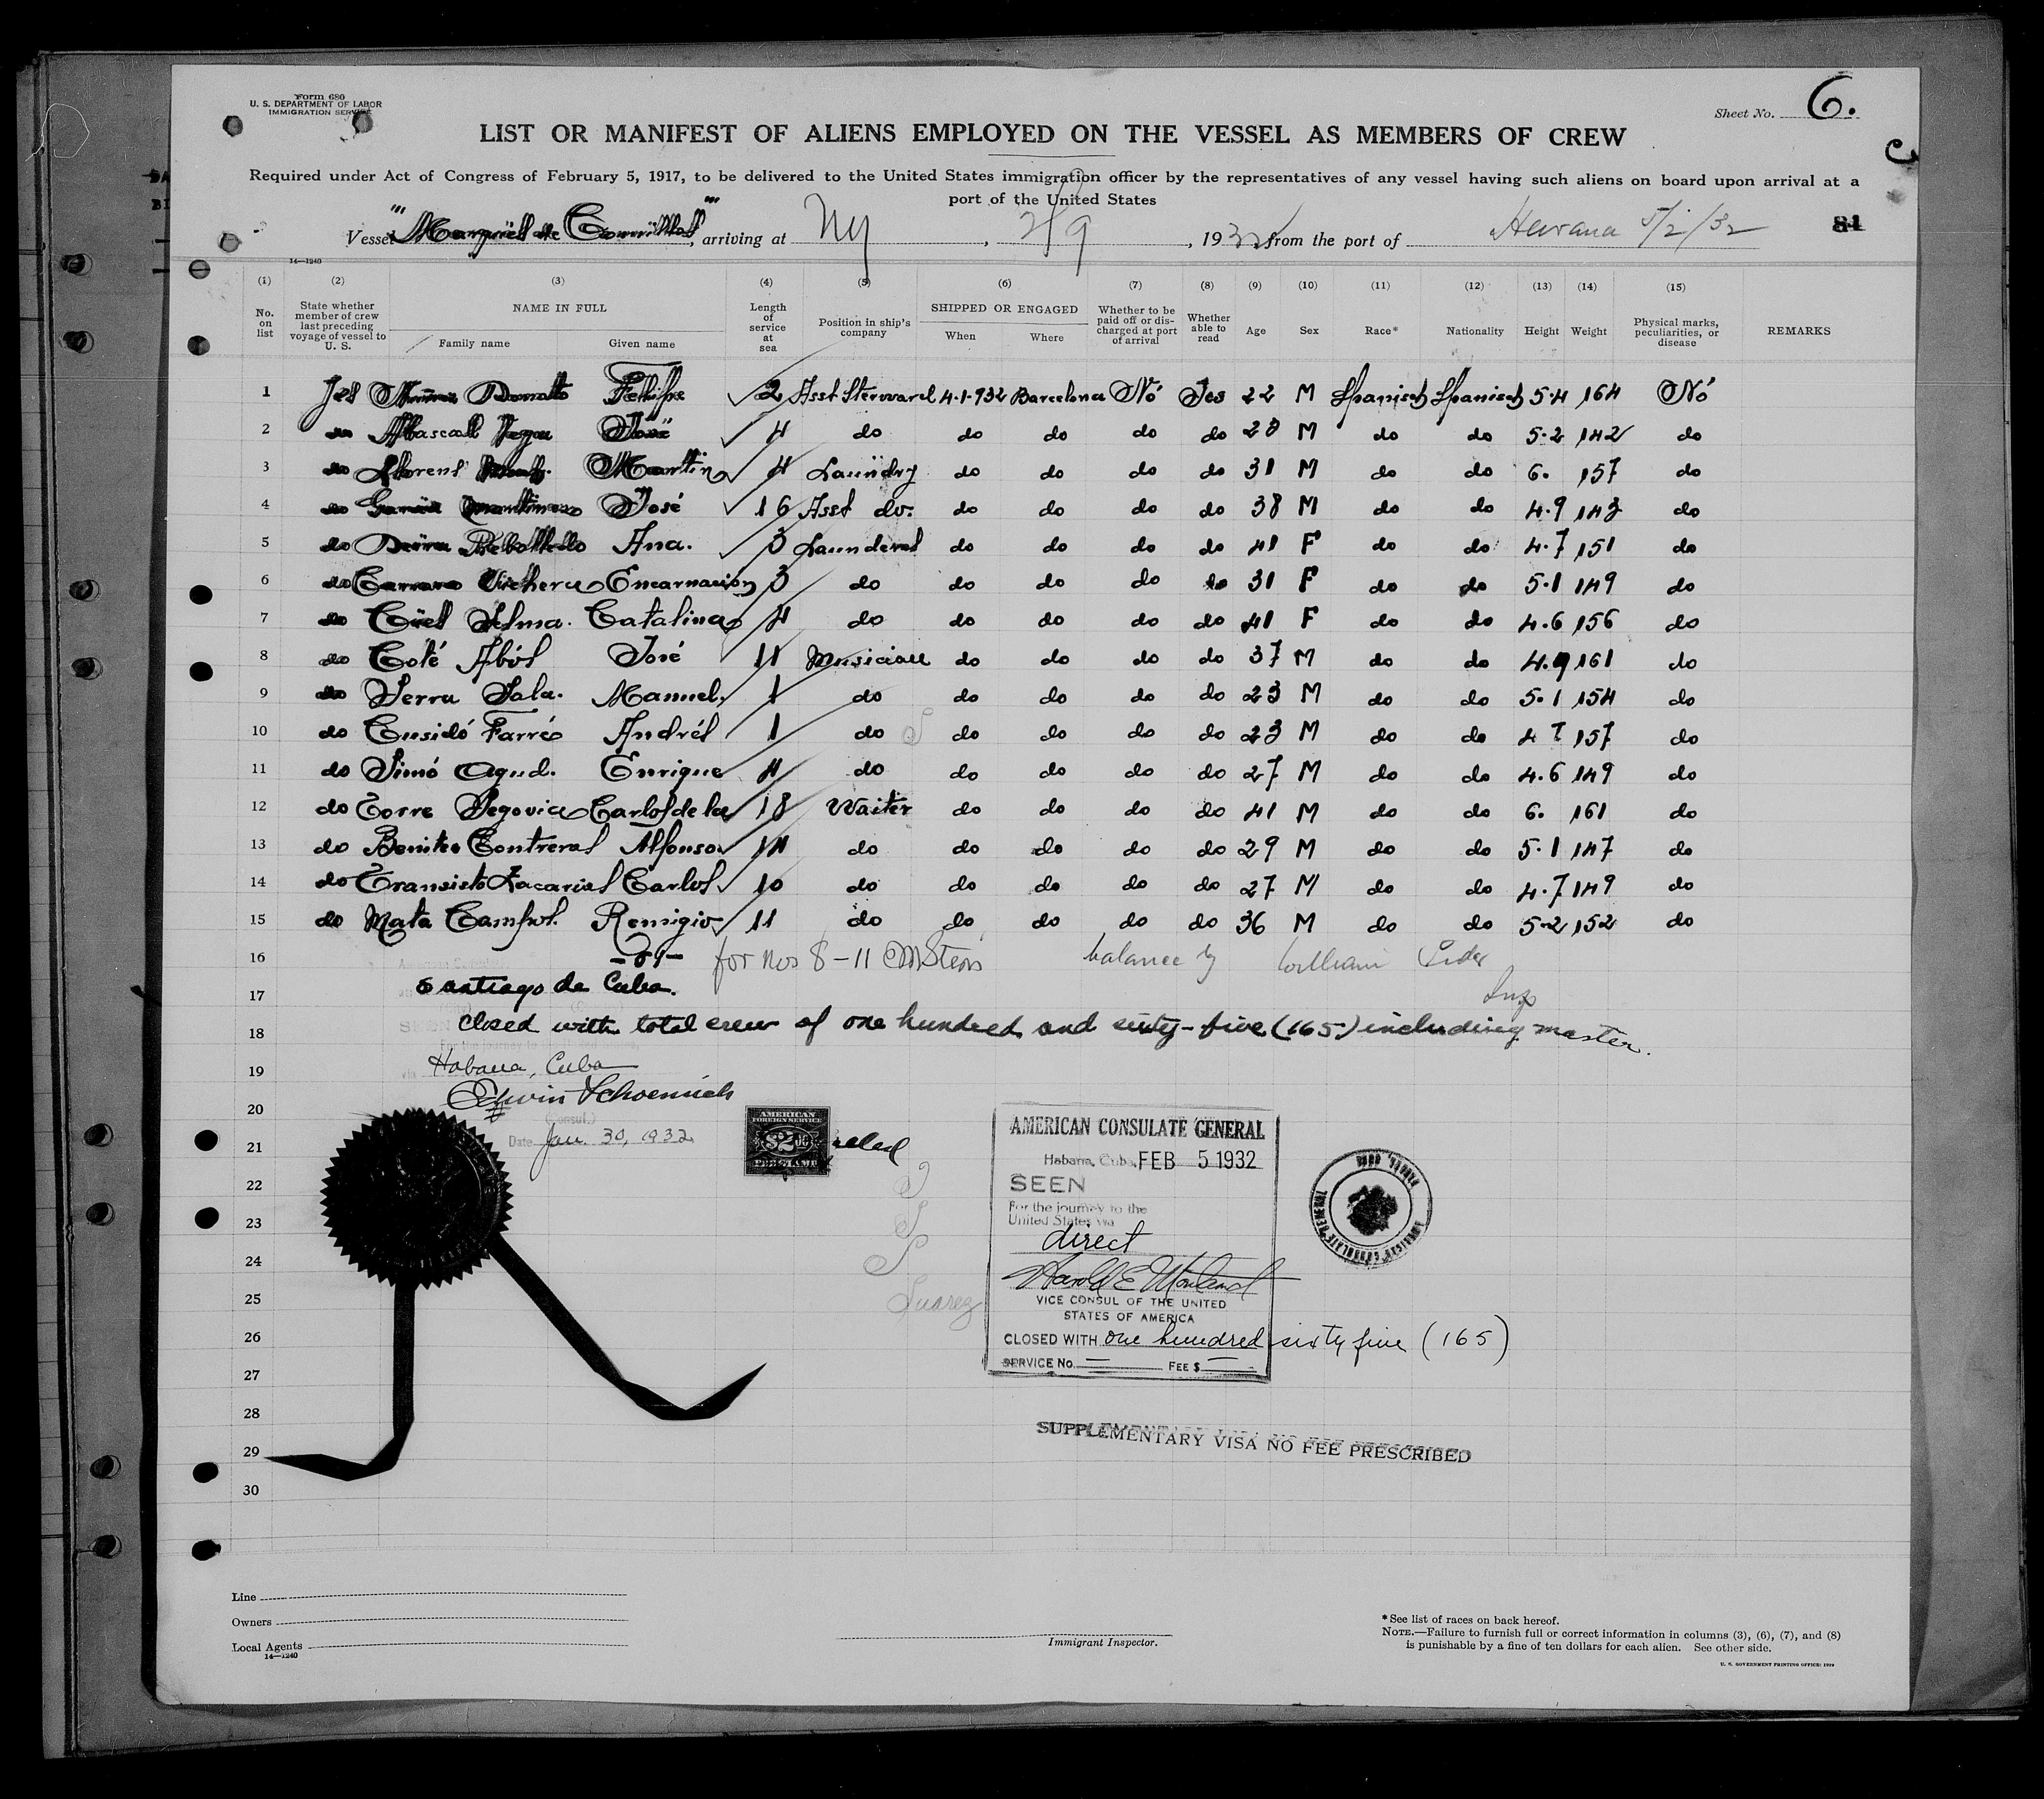 Form 680
U. S. DEPARTMENT OF LABOR
IMMIGRATION SERVICE
Sheet No. 6.
LIST OR MANIFEST OF ALIENS EMPLOYED ON THE VESSEL AS MEMBERS OF CREW
Required under Act of Congress of February 5, 1917, to be delivered to the United States immigration officer by the representatives of any vessel having such aliens on board upon arrival at a
port of the United States
Vessel de , arriving at Ny , 2/9 , 1932 from the port of Havana 5/2/32 81
14-1240
(1) (2) (3) (4) (5) (6) (7) (8) (9) (10) (11) (12) (13) (14) (15)
No. on list State whether member of crew last preceding voyage of vessel to U. S. NAME IN FULL Family name Given name Length of service at sea Position in ship's company SHIPPED OR ENGAGED When Where Whether to be paid off or discharged at port of arrival Whether able to read Age Sex Race* Nationality Height Weight Physical marks, peculiarities, or disease REMARKS
1 Donato Felipe 2 Asst Steward 4-1-932 Barcelona Nó Yes 22 M Spanisch Spanisch 5-4 164 Nó
2 do Abascal José 4 do do do do do M do do 5-2 142 do
3 do Llorens Martin 4 Laundry do do do do 31 M do do 6. 157 do
4 do José 16 Asst do. do do do do 38 M do do 4-9 143 do
5 do Rebolledo Ana. 3 do do do do 41 F do do 4-7 151 do
6 do Encarnacion 3 do do do do do 31 F do do 5-1 149 do
7 do Selma. Catalina 4 do do do do do 41 F do do 4-6 156 do
8 do José 11 Musician do do do do 37 M do do 4-9 161 do
9 do Serra Sala. Manuel. 1 do do do do do 23 M do do 5-1 154 do
10 do Cusidó Farré Andrés 1 do do do do do 23 M do do 4 7 157 do
11 do Simó Agud. Enrique 4 do do do do do 27 M do do 4-6 149 do
12 do Torre Segovia Carlos de la 18 Waiter do do do do 41 M do do 6. 161 do
13 do Benitez Contreras Alfonso 14 do do do do do 29 M do do 5-1 147 do
14 do Transisto Zacarias Carlos 10 do do do do do 27 M do do 4-7 149 do
15 do Mata Campos. Remigio 11 do do do do do 36 M do do 5-2 152 do
16 for nos 8-11 balance by William
17 Santiago de Cuba. Insp
18 closed with total crew of one hundred and sixty-five (165) including master.
19 Habana, Cuba
20 Edwin Schoenrich
(Consul.)
21 Date Jan. 30, 1932
AMERICAN
FOREIGN SERVICE
$2.00
FEE STAMP
22
23
24
25 Suarez
26
27
28
29
30
AMERICAN CONSULATE GENERAL
Habana, Cuba, FEB 5 1932
SEEN
For the journey to the
United States via
direct
Harold E
VICE CONSUL OF THE UNITED
STATES OF AMERICA
CLOSED WITH one hundred sixty five (165)
SERVICE No. — FEE $ —
SUPPLEMENTARY VISA NO FEE PRESCRIBED
Line
Owners
Local Agents
14-1240
Immigrant Inspector.
* See list of races on back hereof.
NOTE.—Failure to furnish full or correct information in columns (3), (6), (7), and (8)
is punishable by a fine of ten dollars for each alien. See other side.
U. S. GOVERNMENT PRINTING OFFICE: 1929